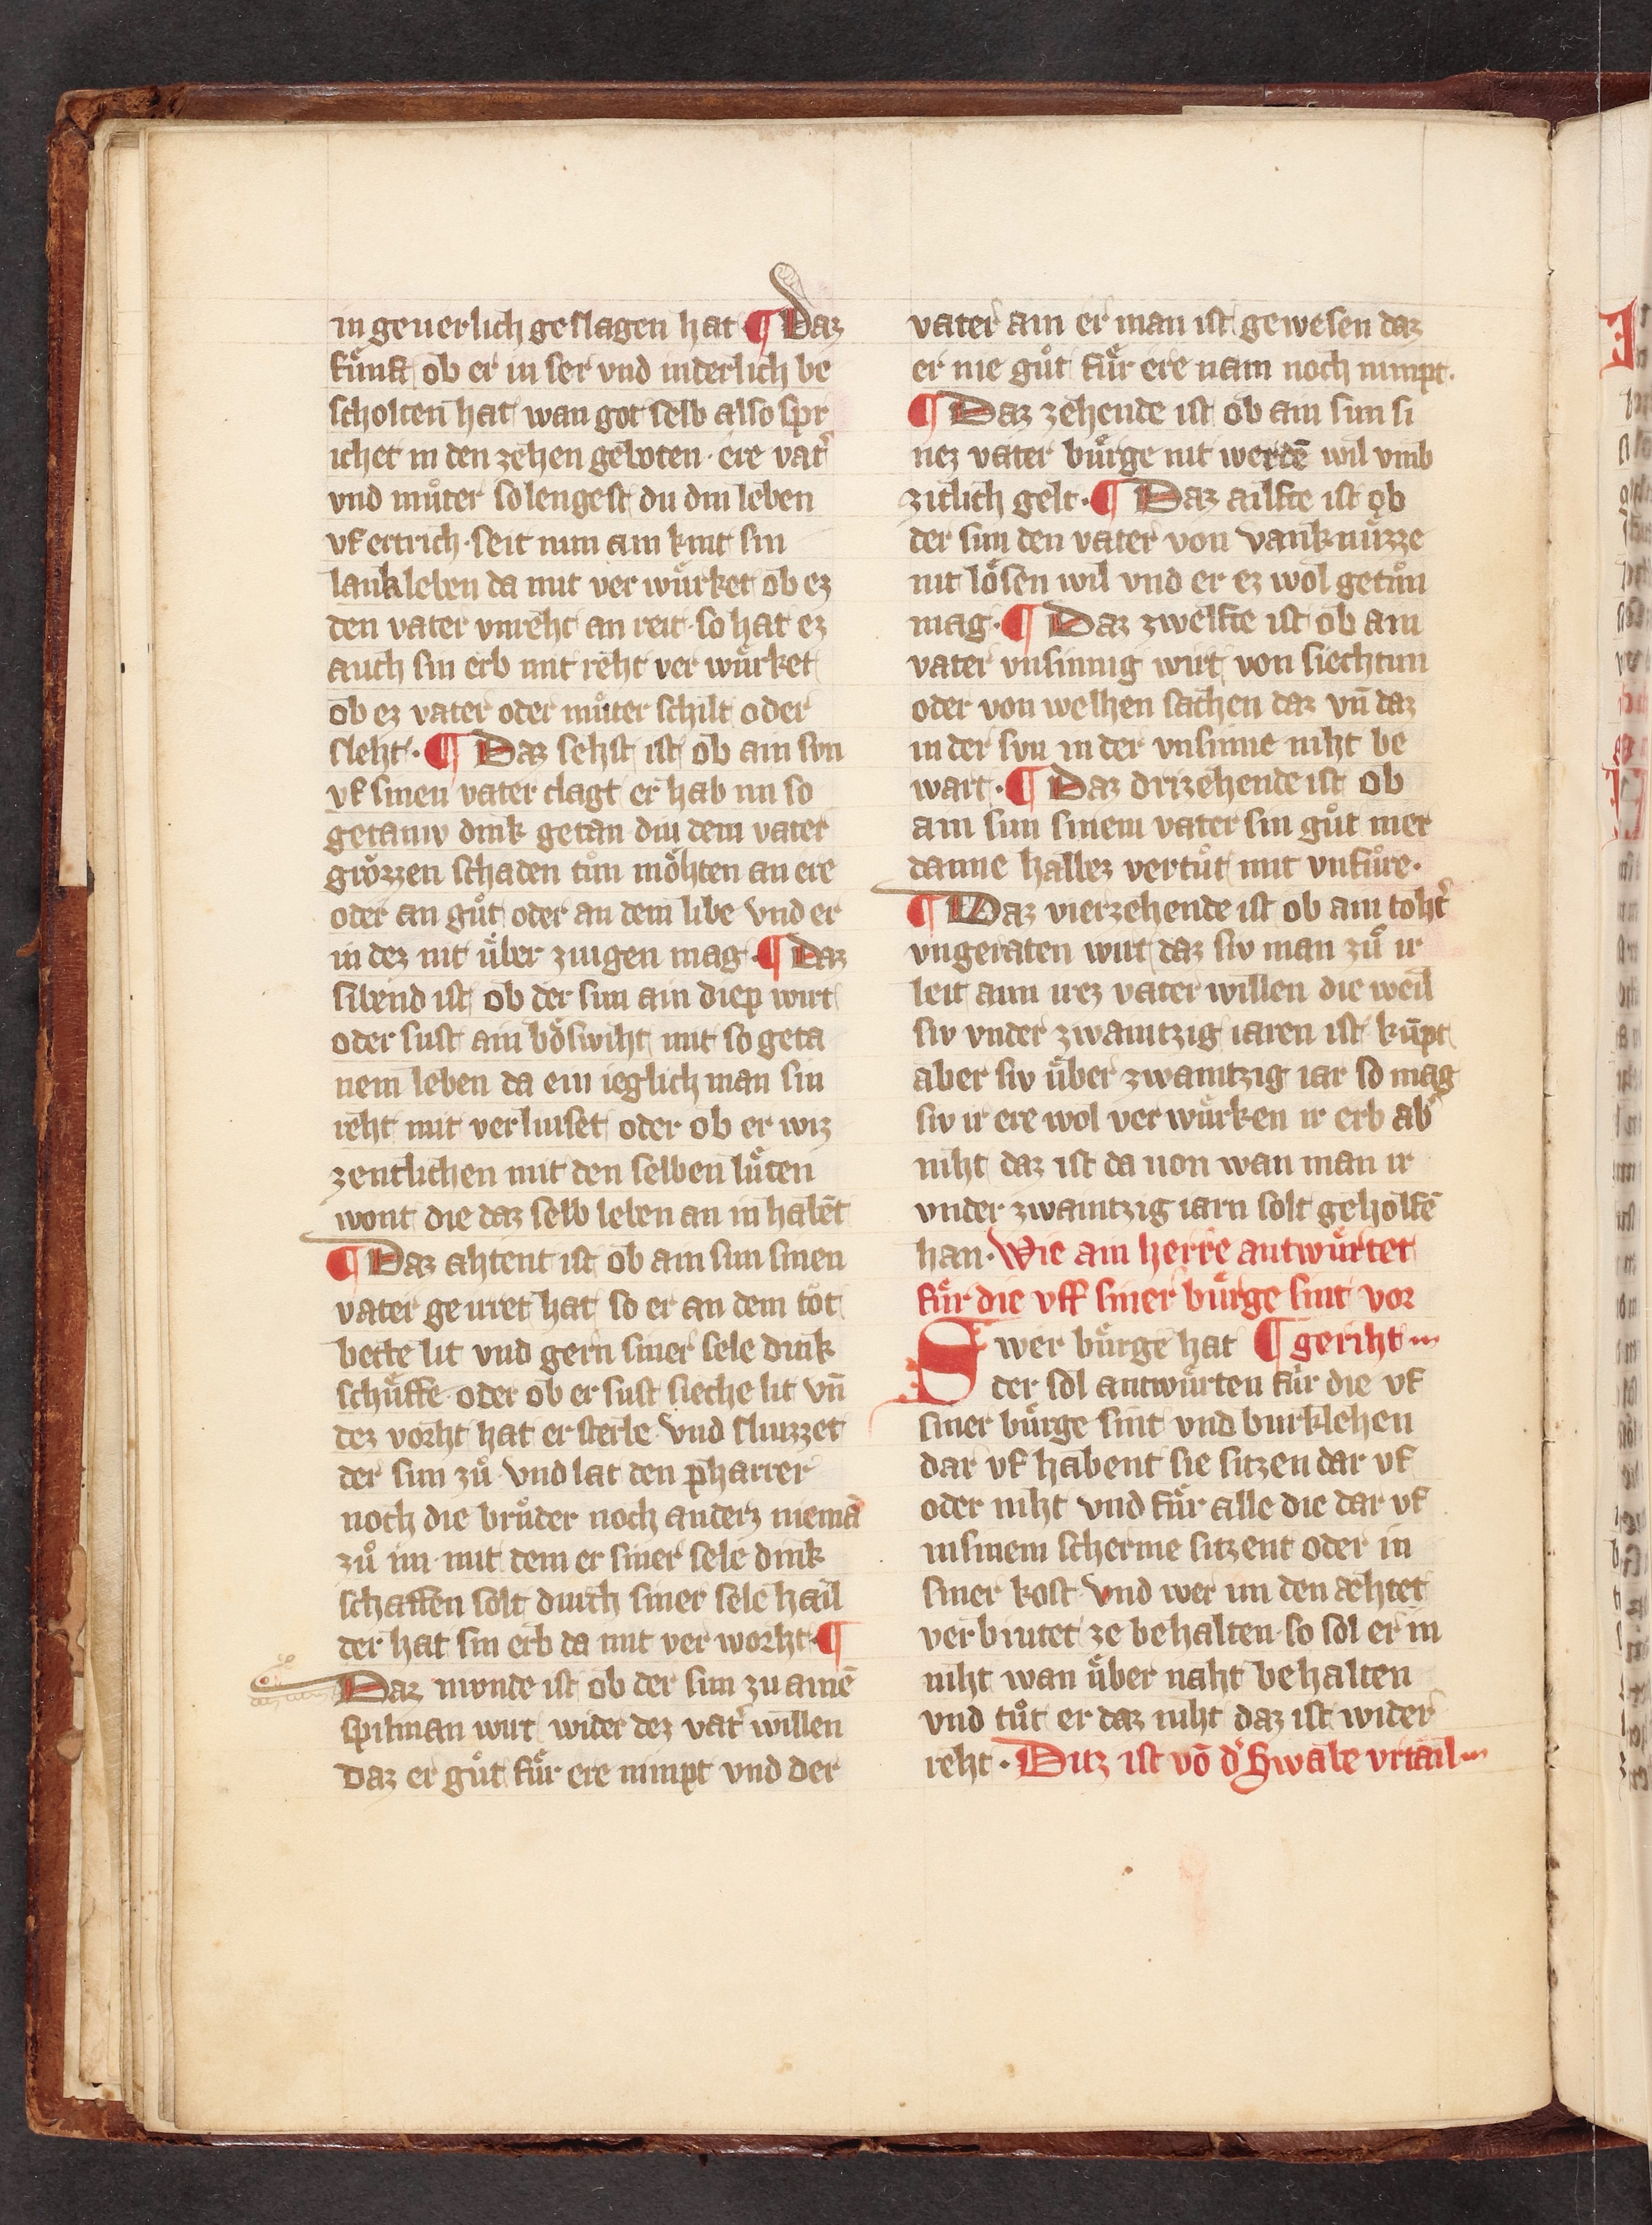 in geuerlich geslagen hat ¶ Daz
fu̍nft ob er in ser vnd inderlich be
scholten hat wan got selb also spr
ichet in den zehen geboten · ere vat͛
vnd můter so lengest du din leben
vf ertrich · seit nun ain kint sin
lankleben da mit ver wu̍rket ob ez
den vater vnreht an reit · so hat ez
auch sin erb mit reht ver wu̍rket
ob ez vater oder můter schilt oder
sleht · ¶ Daz sehst ist ob ain svn
vf sinen vater clagt er hab im so
getaniv dink getan diu dem vater
grözzen schaden tůn möhten an ere
oder an gůt oder an dem libe vnd er
in dez nit u̍ber ziugen mag · ¶ Daz
sibend ist ob der sun ain diep wirt
oder sust ain böswiht mit so geta
nem leben da ein ieglich man sin
reht mit verliuset oder ob er wiz
zentlichen mit den selben lu̍ten
wont die daz selb leben an in habēt
¶ Daz ahtent ist ob ain sun sinen
vater geirret hat so er an dem tot
bette lit vnd gern siner sele dink
schu̍ffe oder ob er sust sieche lit vn̄
dez vorht hat er sterbe vnd sliuzzet
der sun zů vnd lat den pharrer
noch die brůder noch anderz niemā
zů im mit dem er siner sele dink
schaffen solt durch siner sele hail
der hat sin erb da mit ver worht · ¶
Daz niwnde ist ob der sun zu ainē
spilman wirt wider dez vat͛ willen
daz er gůt fu̍r ere nimpt vnd der
vater ain er man ist gewesen daz
er nie gůt fu̍r ere nam noch nimpt ·
¶ Daz zehende ist ob ain sun si
nez vater bu̍rge nit werdē wil vmb
zitlich gelt · ¶ Daz ailfte ist ob
der sun den vater von vanknu̍zze
nit lösen wil vnd er ez wol getůn
mag · ¶ Daz zwelfte ist ob ain
vater vnsinnig wirt von siechtun
oder von welhen sachen daz vn̄ daz
in der svn in der vnsinne niht be
wart · ¶ Daz drizehende ist ob
ain sun sinem vater sin gůt mer
danne halbez vertůt mit vnfůre ·
¶ Daz vierzehende ist ob ain toht͛
vngeraten wirt daz siv man zů ir
leit ann irez vater willen die weil
siv vnder zwaintzig iaren ist ku̅pt
aber siv u̍ber zwaintzig iar so mag
siv ir ere wol ver wu̍rken ir erb ab͛
niht daz ist da uon wan man ir
vnder zwaintzig iarn solt geholfē
han · Wie ain herre antwu̍rtet
fu̍r die vff siner bu̍rge sint vor
Swer bu̍rge hat ¶ geriht
der sol antwu̍rten fu̍r die vf
siner bu̍rge sint vnd burklehen
dar vf habent sie sitzen dar vf
oder niht vnd fu̍r alle die dar vf
in sinem scherme sitzent oder in
siner kost vnd wer im den æhtet
verbiutet ze behalten so sol er in
niht wan u̍ber naht behalten
vnd tůt er daz niht daz ist wider
reht · Ditz ist vō d͛ Swabe vrtail